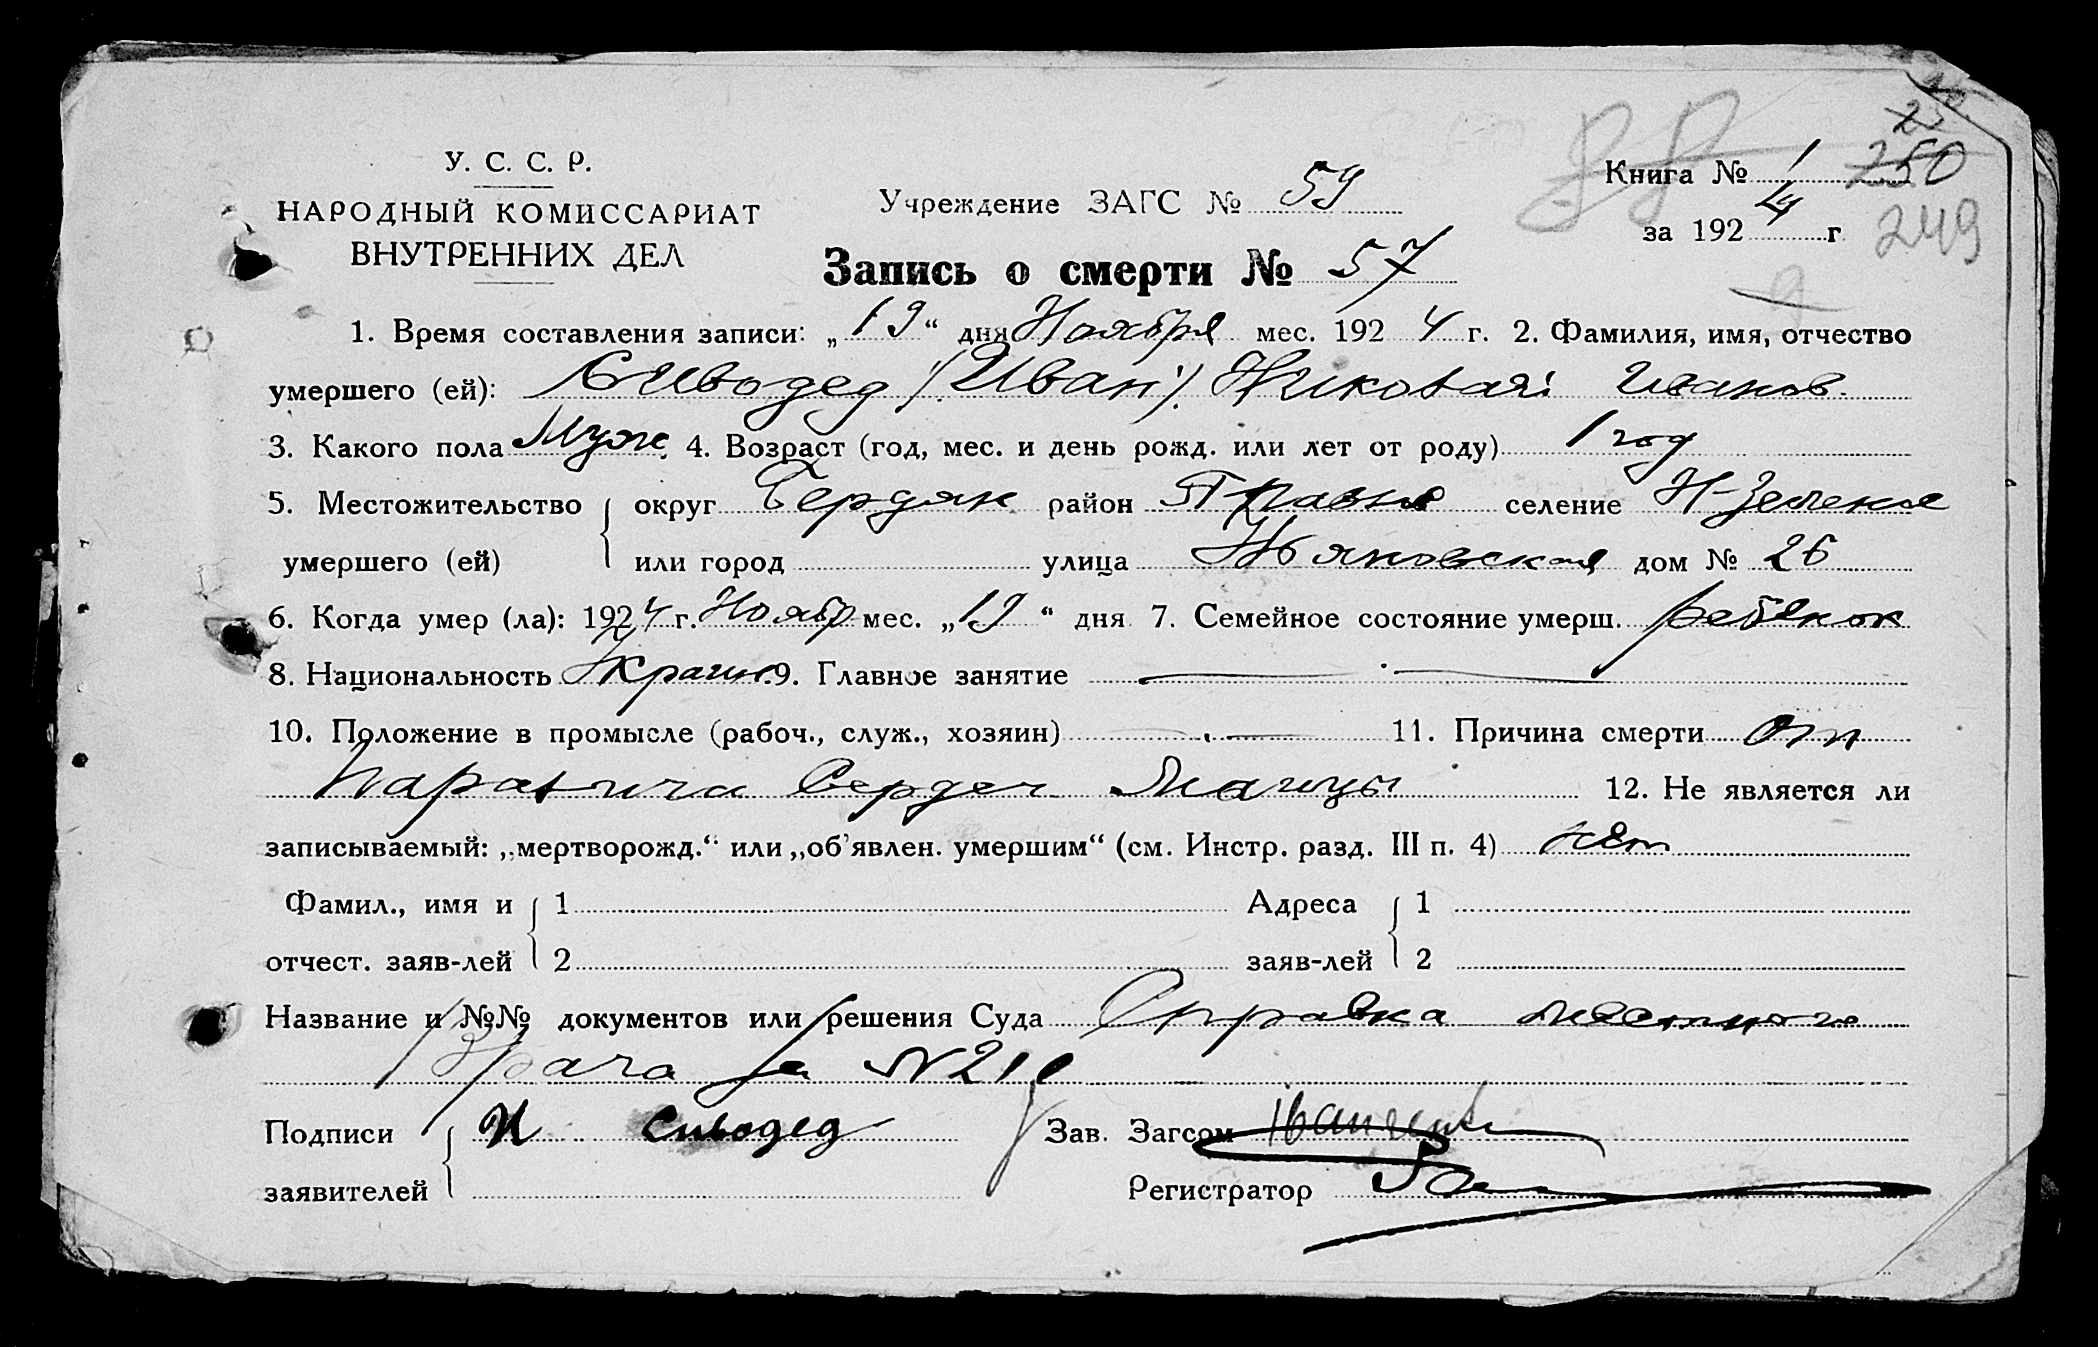 У. С. С. Р.
НАРОДНЫЙ КОМИССАРИАТ
ВНУТРЕННИХ ДЕЛ
Учреждение ЗАГС № 59
Книга № 1
250
за 1924 г.
249
Запись о смерти № 57
1. Время составления записи: „19“ дня Ноября мес. 1924 г. 2. Фамилия, имя, отчество
умершего (ей): Сиводед (Иван) Николай Иванов.
3. Какого пола Муж. 4. Возраст (год, мес. и день рожд. или лет от роду) 1 год
5. Местожительство округ Бердян район селение
умершего (ей) или город улица дом № 26
6. Когда умер (ла): 1924 г. Ноябр мес. „19“ дня 7. Семейное состояние умерш. ребенок
8. Национальность Украин. 9. Главное занятие —
10. Положение в промысле (рабоч., служ., хозяин) — 11. Причина смерти от
Паралича Сердеч
12. Не является ли
записываемый: „мертворожд.“ или „об'явлен. умершим“ (см. Инстр. разд. III п. 4) нет
Фамил., имя и 1 Адреса 1
отчест. заяв-лей 2 заяв-лей 2
Название и №№ документов или решения Суда Справка местного
Врача за № 210
Подписи И Сиводед Зав. Загсом
заявителей Регистратор